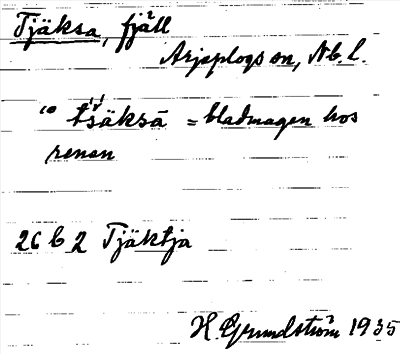 Tjäksa, fjäll
Arjeplogs sn, Nb. l.
tšäksā = bladmagen hos
renen
26 C 2 Tjäktja
H. Grundström 1935